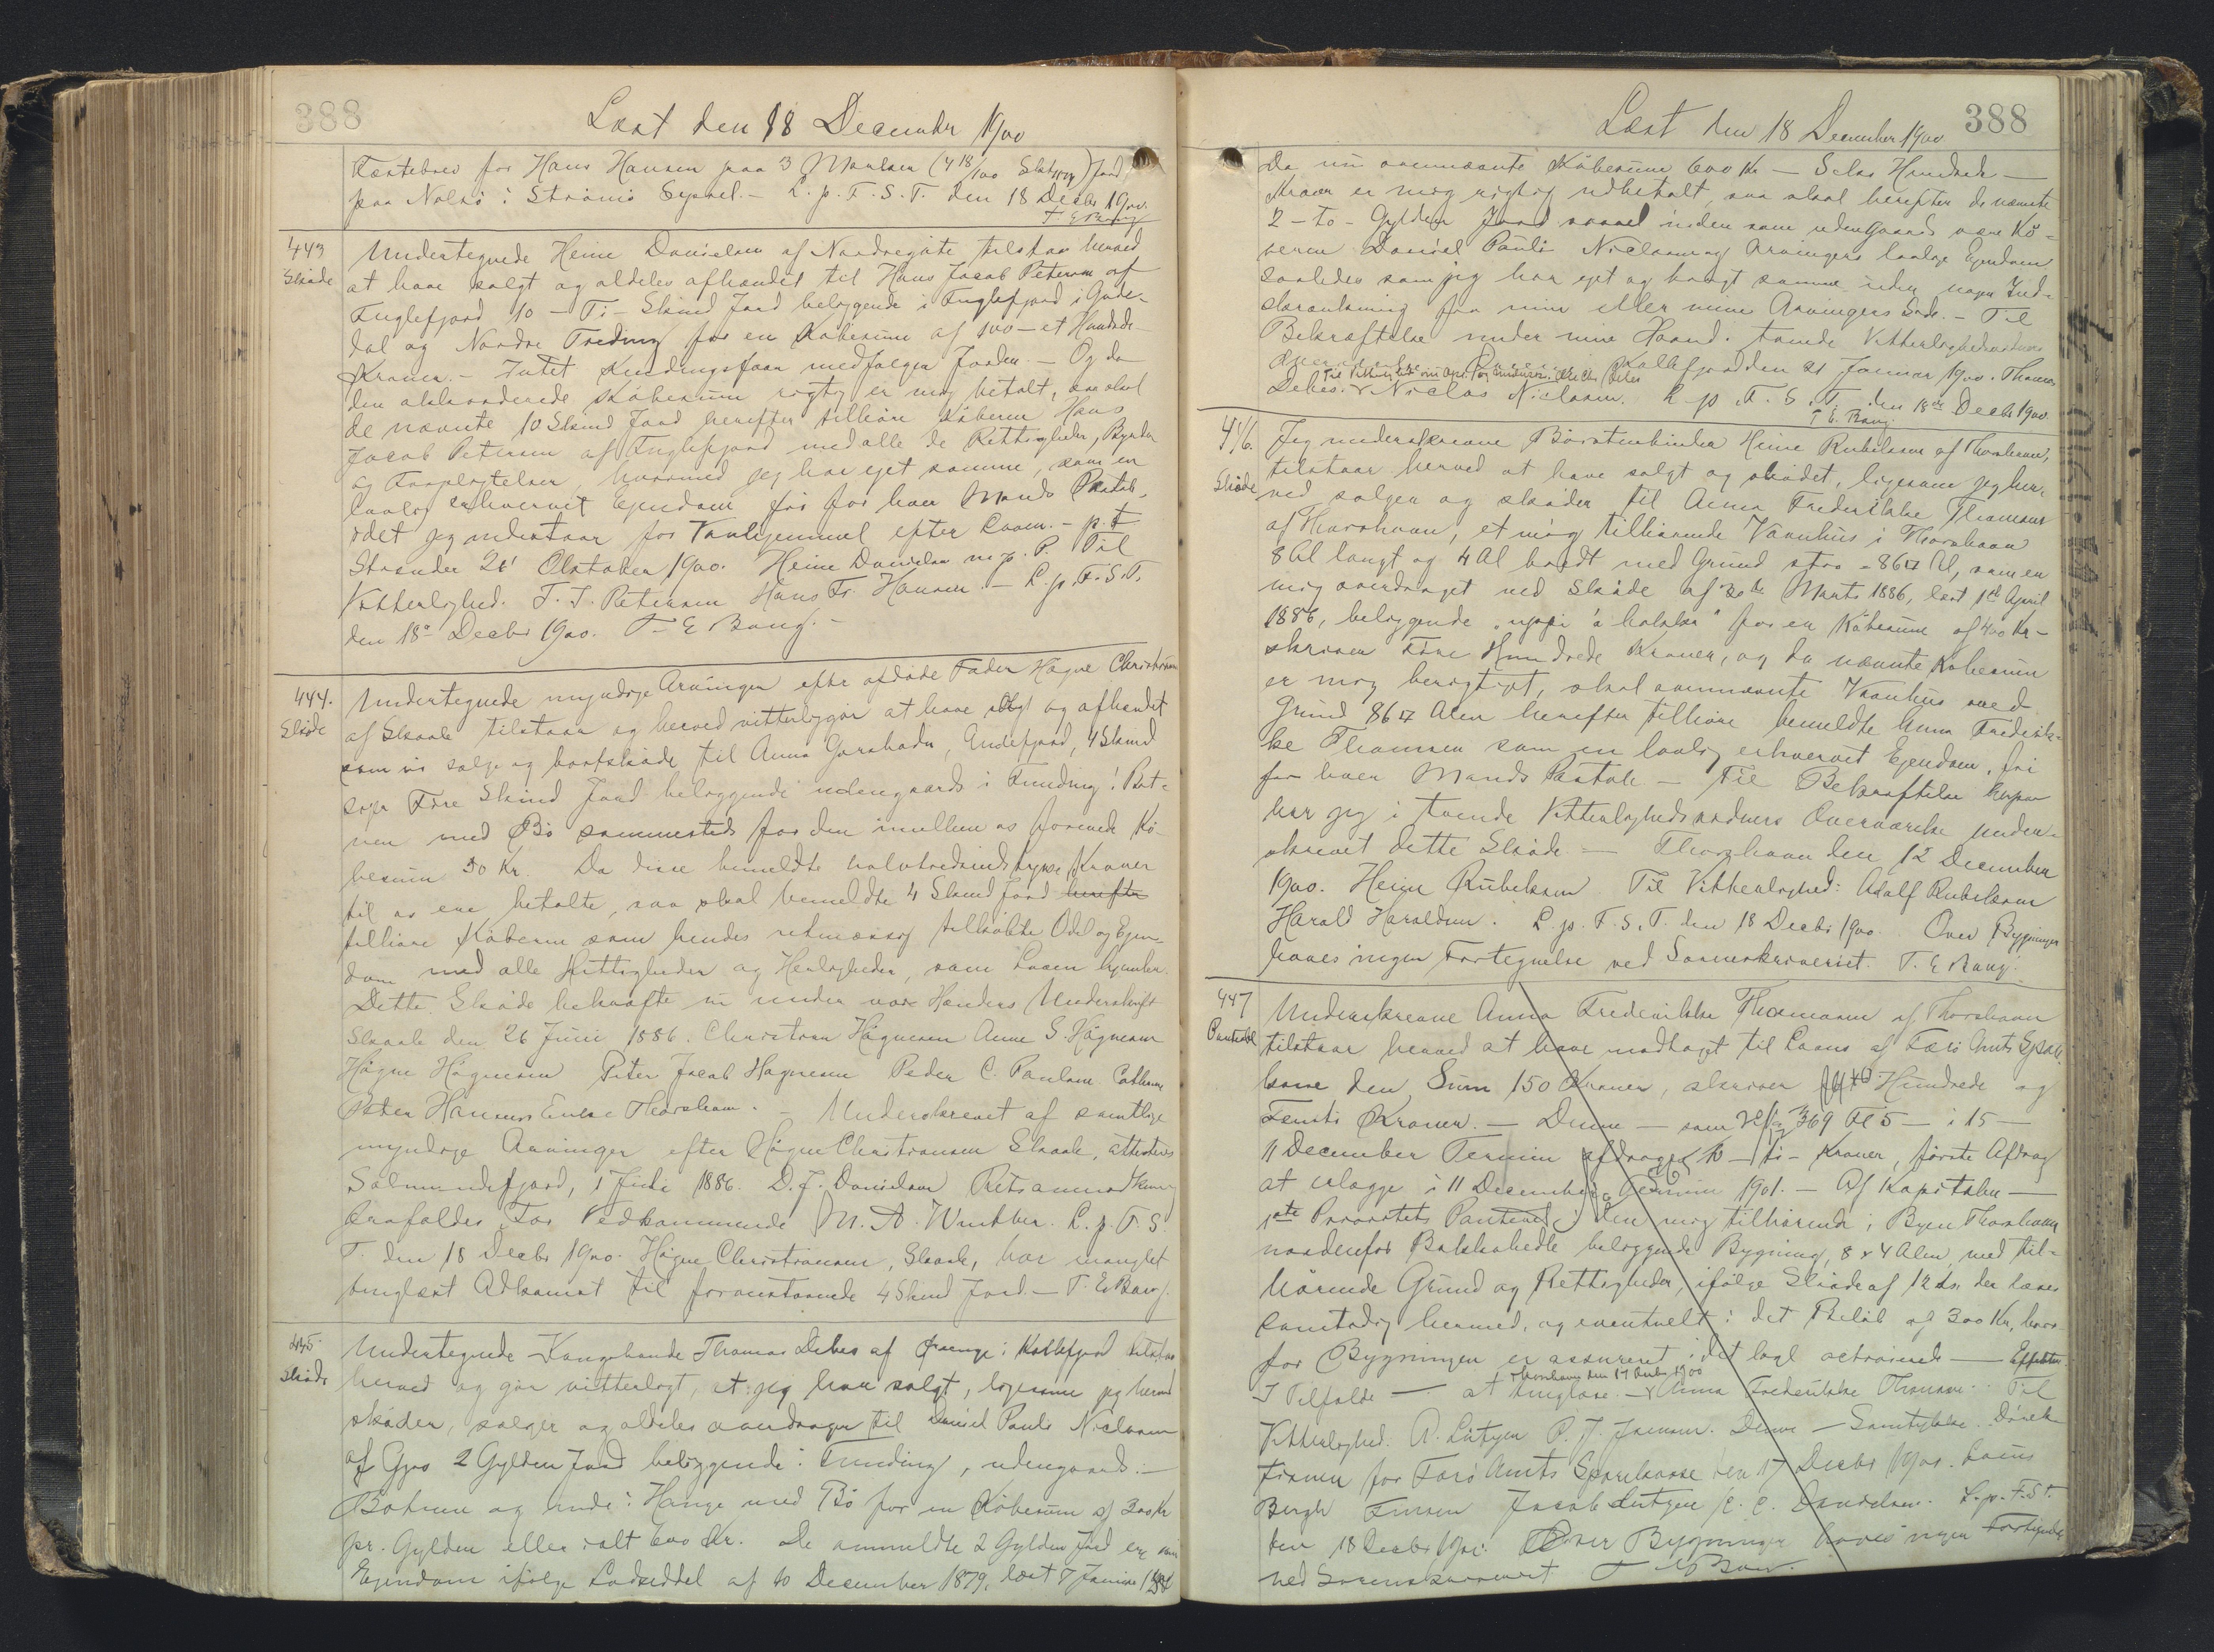 388
Læst den 18 December 1900
Fæstebrev for Hans Hansen paa 3 Marker (4 18/100 Skat) Jord
paa Nolsö i Strömö Syssel. - L. p. F. S. T. den 18 Decbr 1900.
T. E. Bang
443
Skøde
Undertegnede Heine Danielsen af Nordregøte tilstaar herved
at have solgt og aldeles afhændet til Hans Jacob Petersen af
Fuglefjord 10 - Ti - Skind Jord beliggende i Fuglefjord i Gøde-
dal og Nordre Treding for en Købesum af 100 - et Hundrede
Kroner. - Intet Kvidingsfaar medfølger Jorden. - Og da
den akkorderede Købesum rigtig er mig betalt, saa skal
de nævnte 10 Skind Jord herefter tilhøre Køberen Hans
Jacob Petersen af Fuglefjord med alle de Rettigheder, Byrder
og Forpligtelser, hvormed jeg har ejet samme, som en
lovlig erhvervet Ejendom fri for hver Mands Paatale,
idet jeg indestaar for Vanhjemmel efter Loven. - p. t.
Strender 26' Oktober 1900. Heine Danielsen m. p. P. Til
Vitterlighed. T. J. Petersen Hans Fr. Hansen. - L. p. F. S. T.
den 18de Decbr 1900. T. E Bang. -
444.
Skøde
Undertegnede myndige Arvinger efter afdøde Fader Høgne Christiansen
af Skaale tilstaar og herved vitterliggör at have solgt og afhændet
som vi sælge og bortskøde til Anna Garsbada, Andefjord, 4 Skind
siger Fire Skind Jord beliggende udengaards i Funding i Bot-
nen med Bö sammesteds for den imellem os forenede Kö-
besum 50 Kr. Da disse bemeldte halvtredsindstyve Kroner
til os ere betalte, saa skal bemeldte 4 Skind Jord herefter
tilhøre Køberen som hendes retmæssig tilkøbte Odel og Ejen-
dom med alle Rettigheder og Herligheder, som Loven hjemler.
Dette Skøde bekræfte vi under vore Hænders Underskrift
Skaale den 26 Juni 1886. Christian Høgnesen Anne S. Høgnesen
Høgne Høgnesen Peter Jacob Høgnesen Peder C. Poulsen Cathrine
Peter Hansens Enke Thorshavn. - Underskrevet af samtlige
myndige Arvinger efter Høgne Christiansen Skaale, attesteres
Salmundefjord, 1 Juli 1886. D. J. Danielsen
For Vedkommende M. A. Winther. L. p. F. S.
T. den 18 Decbr 1900. Høgne Christiansen, Skaale, har manglet
tinglæst Adkomst til foranstaaende 4 Skind Jord. - T. E Bang.
445
Skøde
Undertegnede Kongsbonde Thomas Debes af Qvenge i Kollefjord tilstaar
herved og gör vitterligt, at jeg har solgt, ligesom jeg herved
skøder, sælger og aldeles overdrager til Daniel Pauli Niclasen
af Gjov 2 Gylden Jord beliggende i Funding, udengaards i
Botnen og inde i Hange med Bö for en Købesum af 300 Kr
pr. Gylden eller ialt 600 Kr. De ommeldte 2 Gylden Jord er min
Ejendom ifølge Lodseddel af 10 December 1879, læst 7 Januar
388
Læst den 18 December 1900
Da nu ovennævnte Købesum 600 Kr - Seks Hundrede -
Kroner er mig rigtig udbetalt, saa skal herefter de nævnte
2 - to - Gylden Jord saavel inden som udengaards være Kö-
berens Daniel Pauli Niclasens og Arvingers lovlige Ejendom
saaledes som jeg har ejet og brugt samme uden nogen Ind-
skrænkning fra min eller mine Arvingers Side. - Til
Bekræftelse under min Haand i tvende Vitterlighedsvidners
Overværelse Qvenge i Kollefjord den 21 Januar 1900. Thomas
Debes. Niclas Niclasen. L. p. F. S. T. den 18de Decbr 1900.
T. E. Bang.
446.
Skøde
Jeg underskrevne Börstenbinder Heine Rubeksen af Thorshavn,
tilstaar herved at have solgt og skødet, ligesom jeg her-
ved sælger og skøder til Anna Frederikke Thomsen
af Thorshavn, et mig tilhørende Vaanhus i Thorshavn
8 Al langt og 4 Al bredt med Grund stor = 86 □ Al, som er
mig overdraget ved Skøde af 30te Marts 1886, læst 1ste April
1886, beliggende „uppi á bakka" for en Købesum af 400 Kr -
skriver Fire Hundrede Kroner, og da nævnte Købesum
er mig berigtiget, skal ovennævnte Vaanhus med
Grund 86 □ Alen herefter tilhøre bemeldte Anna Frederik-
ke Thomsen som en lovlig erhvervet Ejendom, fri
for hver Mands Paatale - Til Bekræftelse herpaa
har jeg i tvende Vitterlighedsvidners Overværelse under-
skrevet dette Skøde. - Thorshavn den 12 December
1900. Heine Rubeksen Til Vitterlighed: Adolf Rubeksen
Harald Haraldsen. L. p. F. S. T. den 18 Decbr 1900. Over Bygninger
haves ingen Fortegnelse ved Sorenskriveriet. T. E Bang.
447
Panteobl
Underskrevne Anna Frederikke Thomsen af Thorshavn
tilstaar herved at have modtaget til Laans af Færö Amts Spare-
kasse den Sum 150 Kroner, skriver Hundrede og
Femti Kroner. - Denne - som 369 Fl 5 - i 15 -
11 December Termin afdrages 10 - ti - Kroner, første Afdrag
at erlægge i 11 December Termin 1901. - Af Kapitalen -
1ste Prioritets Panteret i den mig tilhørende i Byen Thorshavn
nordenfor Bakkahedle beliggende Bygning, 8 x 4 Alen, med til-
hörende Grund og Rettigheder, ifølge Skøde af 12 ds. der læses
samtidig hermed, og eventuelt i det Beløb af 300 Kr, hvor-
for Bygningen er assureret i det kgl octroierede - Effekter
I Tilfælde - at tinglæse. - Thorshavn den 17 Decbr 1900 Anna Frederikke Thomsen. Til
Vitterlighed. A. Lützen P. J. Joensen. Denne - Samtykke. Direk-
tionen for Færö Amts Sparekasse den 17 Decbr 1900. Louis
Bergh Finsen Jacob Lützen C. C. Danielsen. L. p. F. S T.
den 18 Decbr 1900. Over Bygninger haves ingen Fortegnelse
ved Sorenskriveriet T E Bang.